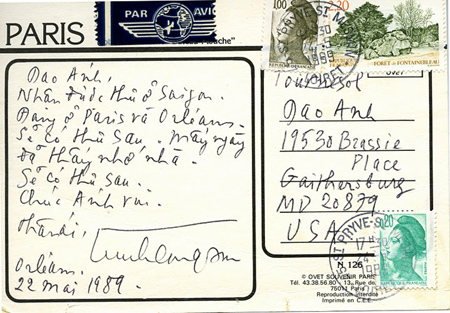 PARIS
PAR AVION
Dao Ánh,
Nhận được thư ở Saigon.
Đang ở Paris và Orléans.
Sẽ có thư sau. Mấy ngày
đã thấy nhớ nhà.
Sẽ có thư sau.
Chúc Ánh vui.
Thân ái,
Orléans.
22 mai 1989.
1,00
2,20
FORET DE FONTAINEBLEAU
ST PRYVE-ST M
1989
LOIRET
Dao Anh
19530 Brassie
Place
Gaithersburg
MD 20879
USA
0,20
45 ST PRYVE-ST
N 126
© OVET SOUVENIR PARIS
Tél. 43.38.56.80 - 13, Rue de
75011 Paris
Reproduction interdite
Imprimé en C.E.E.